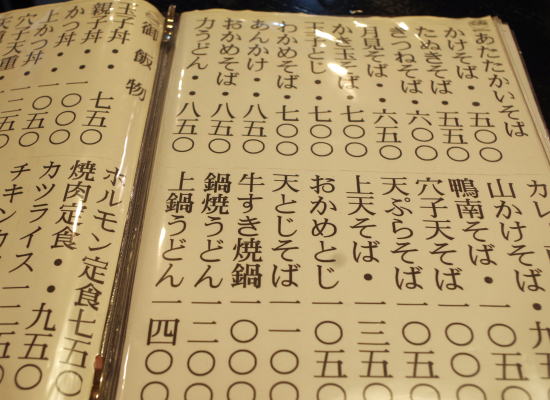 あたたかいそば
かけそば・・五〇〇
たぬきそば・五五〇
きつねそば・六〇〇
月見そば・・六五〇
かき玉そば・七〇〇
玉子とじ・・七〇〇
わかめそば・七〇〇
あんかけ・・八五〇
おかめそば・八五〇
力うどん・・八五〇
カレ
山かけそば
鴨南そば・
穴子天そば
天ぷらそば
上天そば・一三五〇
おかめとじ一〇五〇
天とじそば一一〇〇
牛すき焼鍋一〇〇〇
鍋焼うどん一二〇〇
上鍋うどん一四〇〇
御飯物
玉子丼・
親子丼・・七五〇
かつ丼・・一〇〇〇
上かつ丼・一〇五〇
穴子天重・一二五〇
ホルモン定食七五〇
焼肉定食・・九五〇
カツライス一一五〇
チキンカ